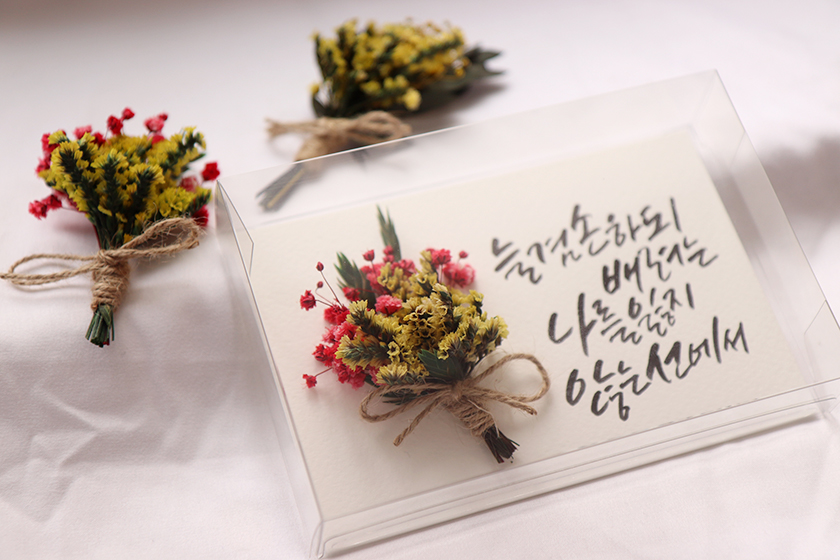 늘 겸손하되
배려는
나를 잃지
않는 선에서